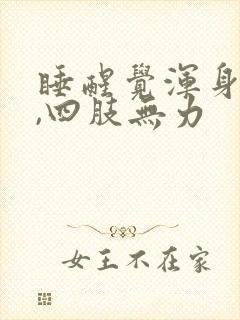 睡醒覺渾身
,四肢無力
女王不在家